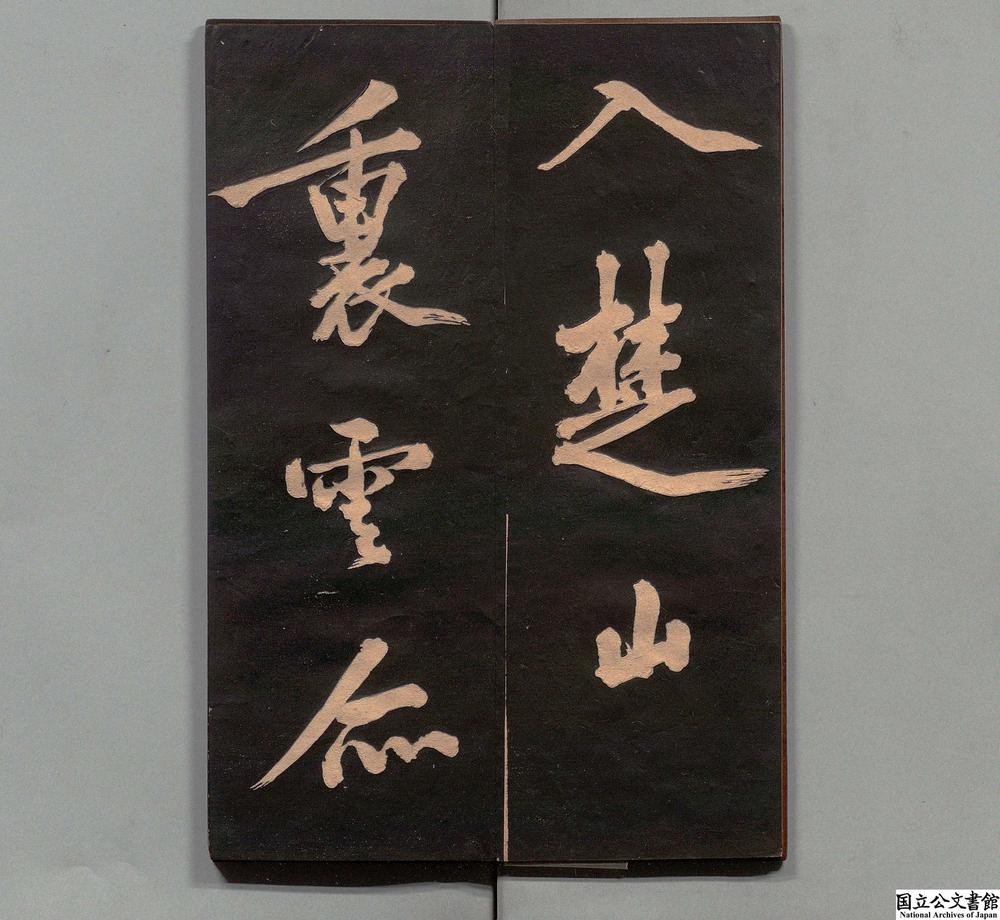 入楚山
裏雲亦
国立公文書館
National Archives of Japan